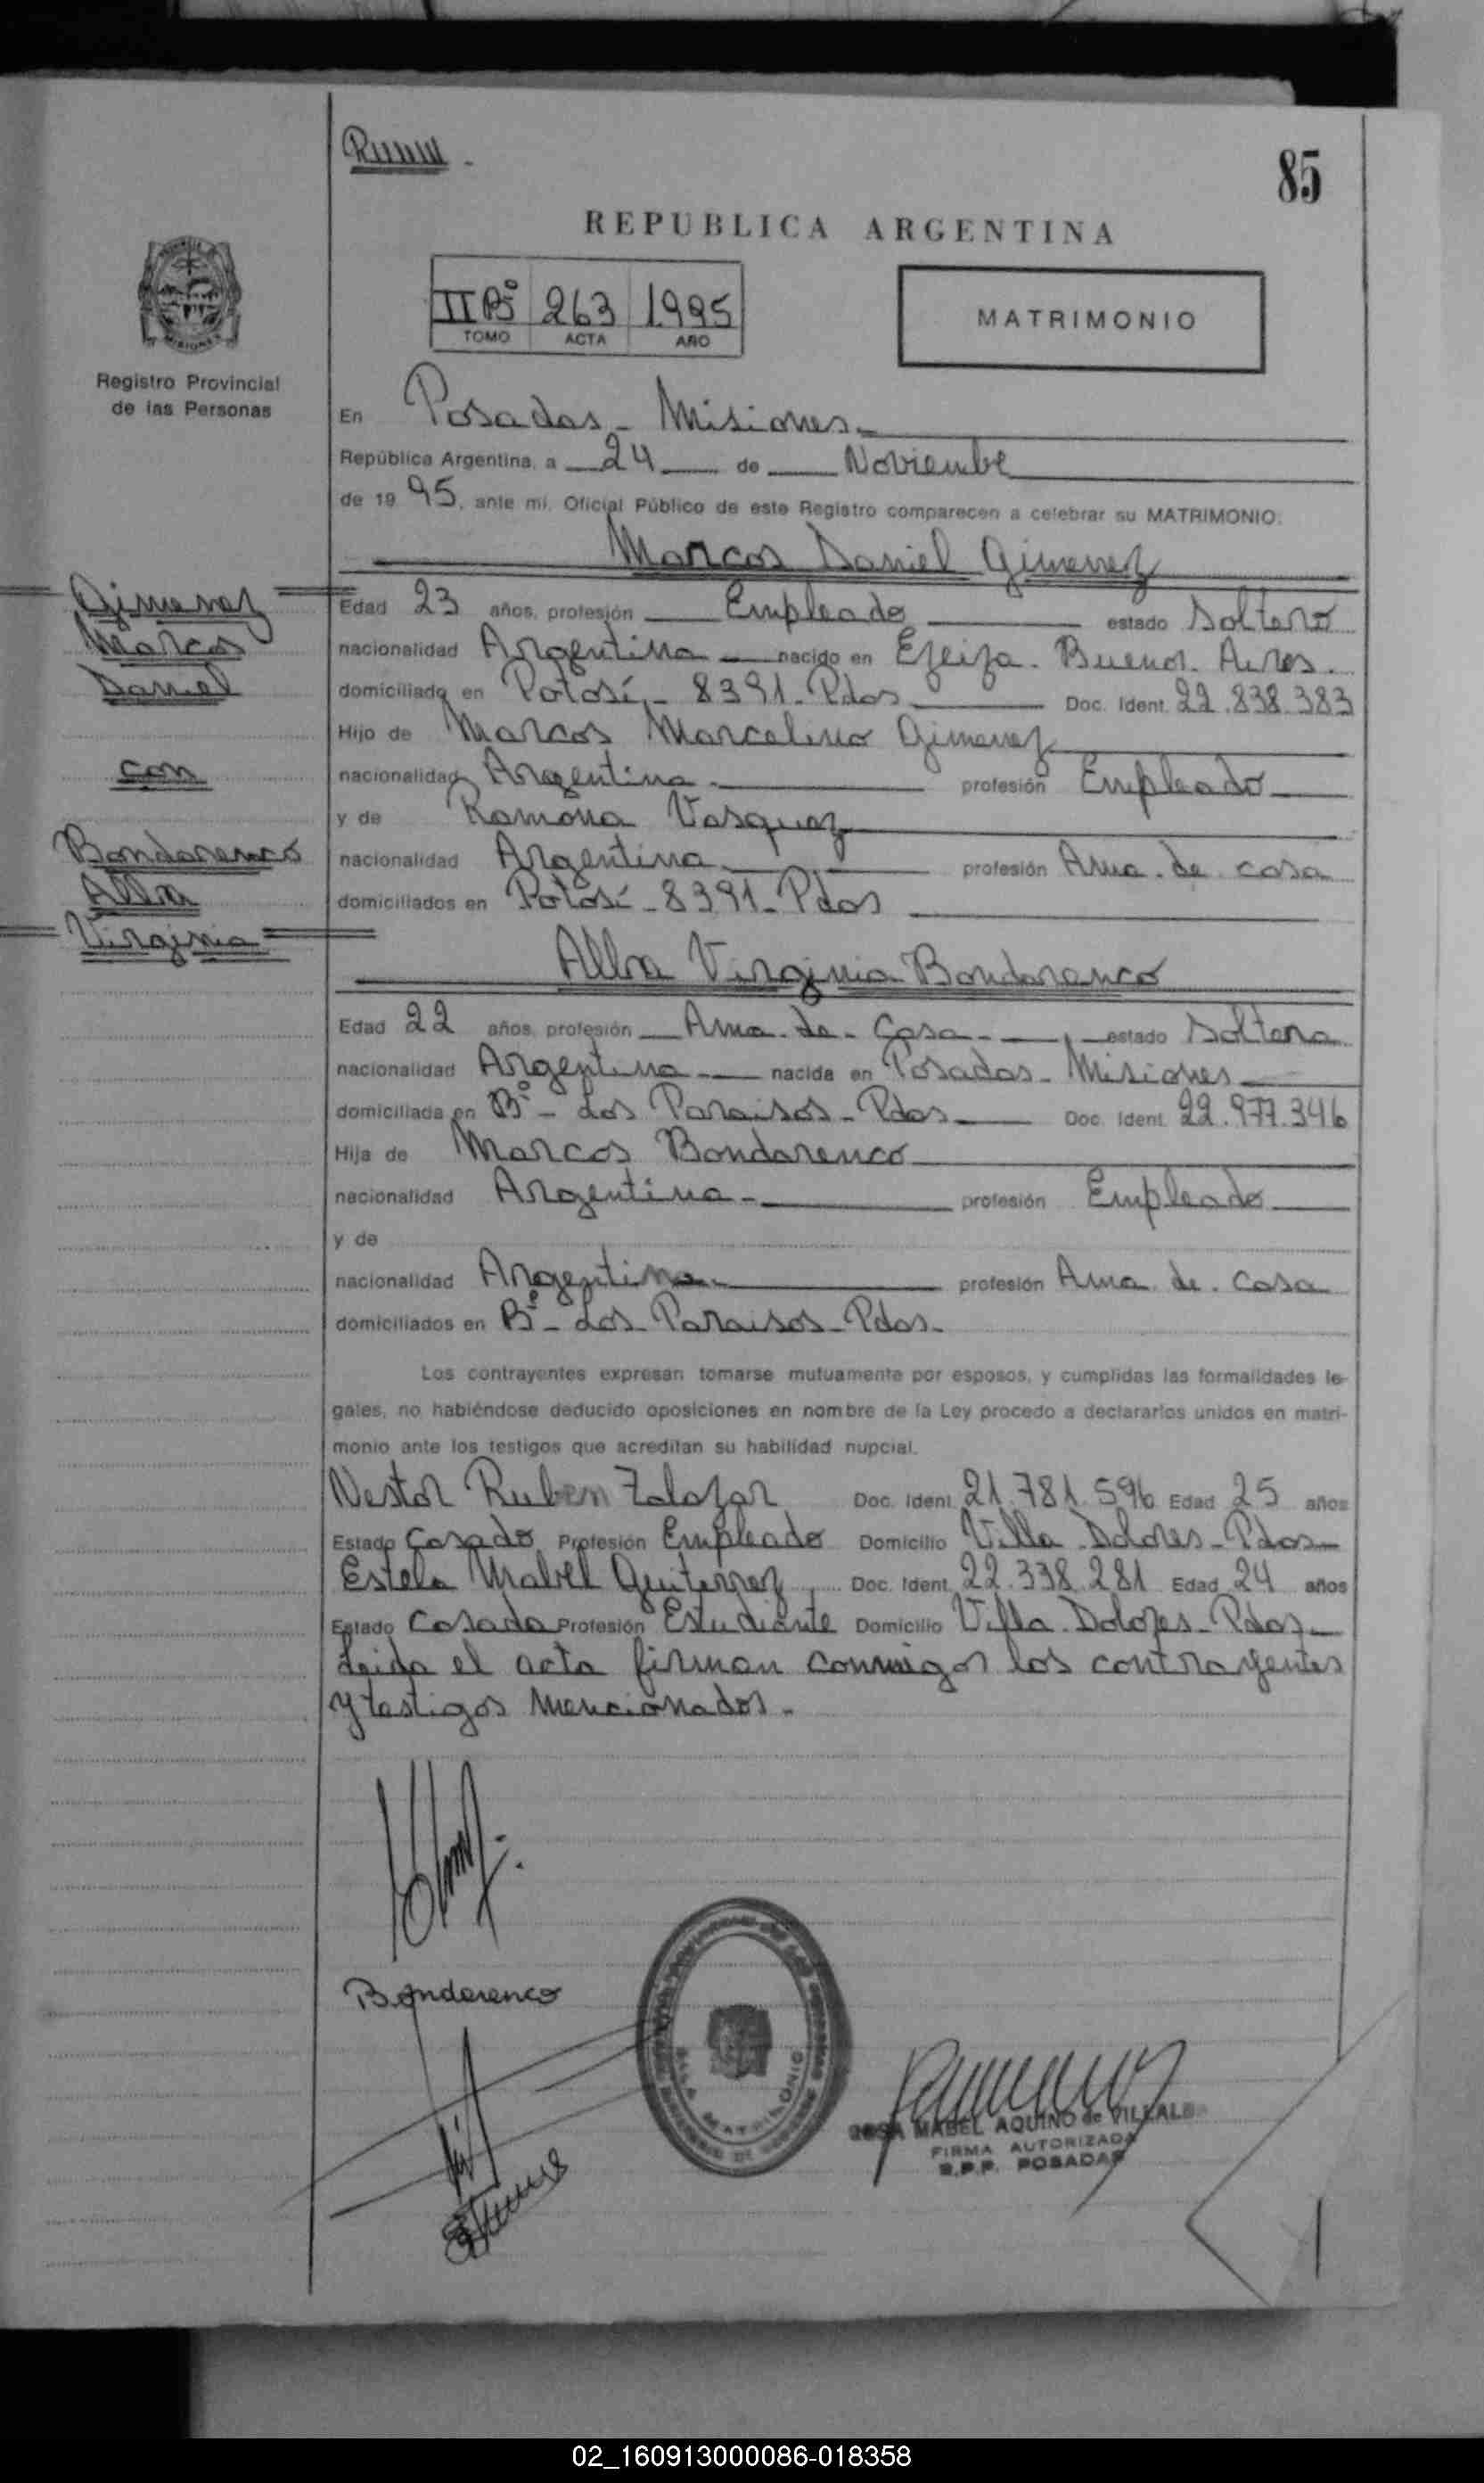 85
REPUBLICA ARGENTINA
II Bº 263 1.995
TOMO ACTA AÑO
MATRIMONIO
Registro Provincial
de las Personas
En Posadas - Misiones -
República Argentina, a 24 de Noviembre
de 19 95, ante mi, Oficial Público de este Registro comparecen a celebrar su MATRIMONIO:
Marcos Daniel Gimenez
Gimenez
Marcos
Daniel
con
Bondarenco
Alba
Virginia
Edad 23 años, profesión Empleado estado Soltero
nacionalidad Argentina - nacido en Ezeiza - Buenos Aires.
domiciliado en Potosí - 8391 - Pdas Doc. Ident. 22.838.383
Hijo de Marcos Marcelino Gimenez
nacionalidad Argentina - profesión Empleado
y de Ramona Vasquez
nacionalidad Argentina - profesión Ama de casa
domiciliados en Potosí - 8391 - Pdas
Alba Virginia Bondarenco
Edad 22 años, profesión Ama - de - Casa - estado Soltera
nacionalidad Argentina - nacida en Posadas - Misiones
domiciliada en Bº - Los Paraisos - Pdas Doc. Ident. 22.977.346
Hija de Marcos Bondarenco
nacionalidad Argentina - profesión Empleado
y de
nacionalidad Argentina - profesión Ama de casa
domiciliados en Bº - Los Paraisos - Pdas -
Los contrayentes expresan tomarse mutuamente por esposos, y cumplidas las formalidades le-
gales, no habiéndose deducido oposiciones en nombre de la Ley procedo a declararlos unidos en matri-
monio ante los testigos que acreditan su habilidad nupcial.
Nestor Ruben Zalazar Doc. Ident. 21.781.596 Edad 25 años
Estado Casado Profesión Empleado Domicilio Villa Dolores - Pdas -
Estela Mabel Guiterrez Doc. Ident. 22.338.281 Edad 24 años
Estado Casada Profesión Estudiante Domicilio Villa Dolores - Pdas -
Leida el acta firman conmigos los contrayentes
y testigos mencionados -
Bondarenco
MATRIMONIO
ROSA MABEL AQUINO de VILLALBA
FIRMA AUTORIZADA
R.P.P. POSADAS
02_160913000086-018358